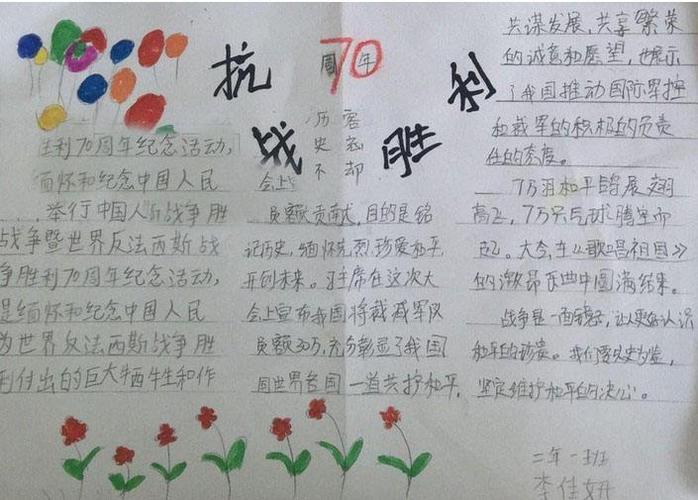 抗战胜利
70周年
历史不
容忘却
胜利70周年纪念活动,
缅怀和纪念中国人民
举行中国人民战争胜
战争暨世界反法西斯战
争胜利70周年纪念活动,
是缅怀和纪念中国人民
为世界反法西斯战争胜
利付出的巨大牺牲和作
会上
员额贡献,目的是铭
记历史,缅怀先烈,珍爱和平,
开创未来。习主席在这次大
会上宣布我国将裁减军队
员额30万,充分彰显了我国
同世界各国一道共护和平,
共谋发展,共享繁荣
的诚意和愿望,也展示
了我国推动国际军控
和裁军的积极的负责
任的态度。
7万羽和平鸽展翅
高飞,7万只气球腾空而
起。大会在《歌唱祖国》
的激昂歌曲中圆满结束。
战争是一面镜子,让人更好认识
和平的珍贵。我们要以史为鉴,
坚定维护和平的决心。
二年一班
李佳妍